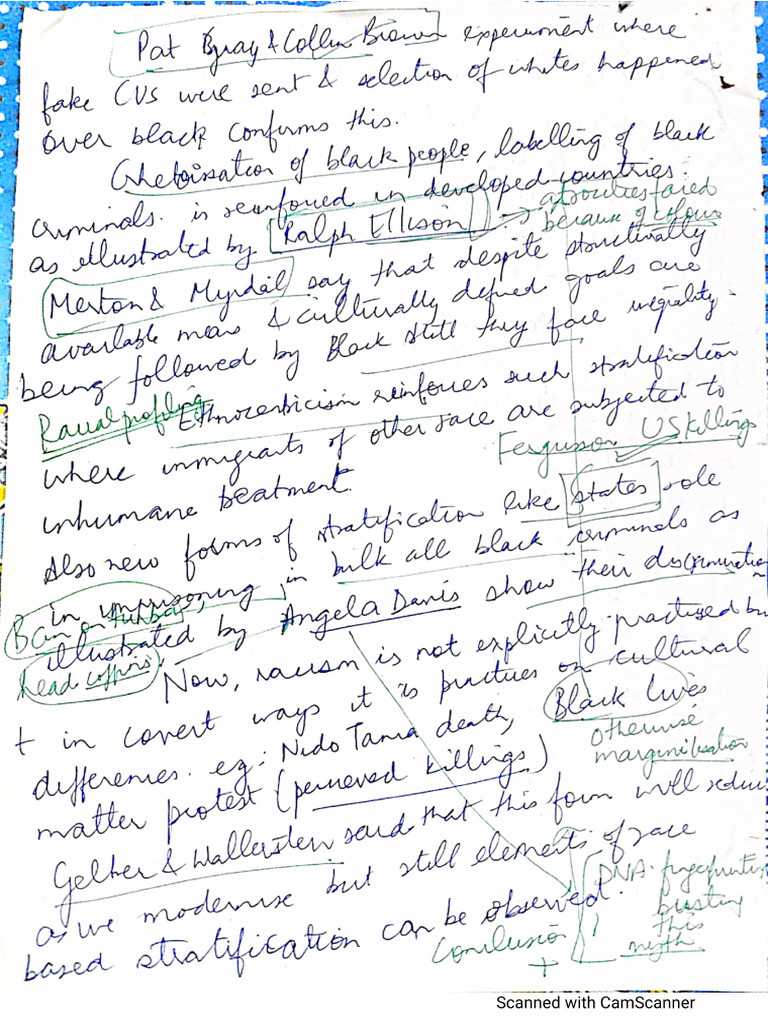 Pat Bgray & Collin Brown experiment where
fake CVs were sent & selection of whites happened
over black confirms this.
Ghetoisation of black people, labelling of black
criminals. is reinforced in developed countries.
as illustrated by Ralph Ellison → atrocities faced
because of colour
Merton & Myrdal say that despite structurally
available means & culturally defined goals are
being followed by Black still they face inequality.
Racial profiling
Ethnocentricism reinforces such stratification
where immigrants of other race are subjected to
Ferguson US killings
inhumane treatment.
Also new forms of stratification like states role
in imprisoning in bulk all black criminals as
Ban on turban,
illustrated by Angela Davis show their discrimination
head
Now, racism is not explicitly practiced bu
+ in covert ways it is practices on cultural
differences. eg: Nido Tania death, Black lives
otherwise
marginilisation
matter protest (perceved killings)
Gelber & Wallerstein said that this form will reduce
as we modernise but still elements of race
based stratification can be observed.
Conclusion
+
DNA fingerprinting
busting
this
myth
Scanned with CamScanner